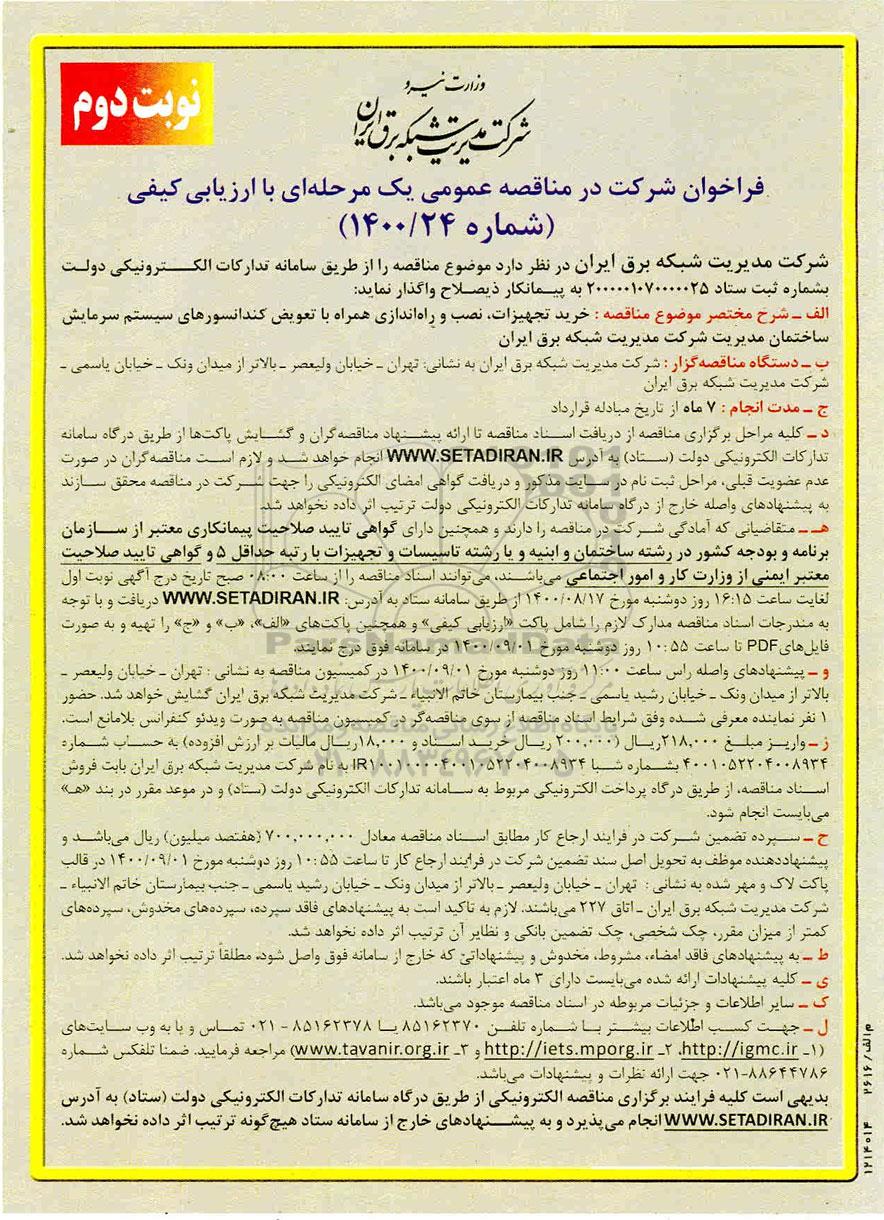 نوبت دوم
وزارت نیرو
شرکت مدیریت شبکه برق ایران
فراخوان شرکت در مناقصه عمومی یک مرحله‌ای با ارزیابی کیفی
(شماره ۱۴۰۰/۲۴)
شرکت مدیریت شبکه برق ایران در نظر دارد موضوع مناقصه را از طریق سامانه تدارکات الکترونیکی دولت
بشماره ثبت ستاد ۲۰۰۰۰۰۱۰۷۰۰۰۰۰۲۵ به پیمانکار ذیصلاح واگذار نماید:
الف ـ شرح مختصر موضوع مناقصه : خرید تجهیزات، نصب و راه‌اندازی همراه با تعویض کندانسورهای سیستم سرمایش
ساختمان مدیریت شرکت مدیریت شبکه برق ایران
ب ـ دستگاه مناقصه‌گزار : شرکت مدیریت شبکه برق ایران به نشانی: تهران ـ خیابان ولیعصر ـ بالاتر از میدان ونک ـ خیابان یاسمی ـ
شرکت مدیریت شبکه برق ایران
ج ـ مدت انجام : ۷ ماه از تاریخ مبادله قرارداد
د ـ کلیه مراحل برگزاری مناقصه از دریافت اسناد مناقصه تا ارائه پیشنهاد مناقصه‌گران و گشایش پاکت‌ها از طریق درگاه سامانه
تدارکات الکترونیکی دولت (ستاد) به آدرس WWW.SETADIRAN.IR انجام خواهد شد و لازم است مناقصه‌گران در صورت
عدم عضویت قبلی، مراحل ثبت نام در سایت مذکور و دریافت گواهی امضای الکترونیکی را جهت شرکت در مناقصه محقق سازند
به پیشنهادهای واصله خارج از درگاه سامانه تدارکات الکترونیکی دولت ترتیب اثر داده نخواهد شد.
هـ ـ متقاضیانی که آمادگی شرکت در مناقصه را دارند و همچنین دارای گواهی تایید صلاحیت پیمانکاری معتبر از سازمان
برنامه و بودجه کشور در رشته ساختمان و ابنیه و یا رشته تاسیسات و تجهیزات با رتبه حداقل ۵ و گواهی تایید صلاحیت
معتبر ایمنی از وزارت کار و امور اجتماعی می‌باشند، می‌توانند اسناد مناقصه را از ساعت ۰۸:۰۰ صبح تاریخ درج آگهی نوبت اول
لغایت ساعت ۱۶:۱۵ روز دوشنبه مورخ ۱۴۰۰/۰۸/۱۷ از طریق سامانه ستاد به آدرس: WWW.SETADIRAN.IR دریافت و با توجه
به مندرجات اسناد مناقصه مدارک لازم را شامل پاکت «ارزیابی کیفی» و همچنین پاکت‌های «الف»، «ب» و «ج» را تهیه و به صورت
فایل‌های PDF تا ساعت ۱۰:۵۵ روز دوشنبه مورخ ۱۴۰۰/۰۹/۰۱ در سامانه فوق درج نمایند.
و ـ پیشنهادهای واصله راس ساعت ۱۱:۰۰ روز دوشنبه مورخ ۱۴۰۰/۰۹/۰۱ در کمیسیون مناقصه به نشانی : تهران ـ خیابان ولیعصر ـ
بالاتر از میدان ونک ـ خیابان رشید یاسمی ـ جنب بیمارستان خاتم الانبیاء ـ شرکت مدیریت شبکه برق ایران گشایش خواهد شد. حضور
۱ نفر نماینده معرفی شده وفق شرایط اسناد مناقصه از سوی مناقصه‌گر در کمیسیون مناقصه به صورت ویدئو کنفرانس بلامانع است.
ز ـ واریز مبلغ ۲۱۸,۰۰۰ریال (۲۰۰,۰۰۰ ریال خرید اسناد و ۱۸,۰۰۰ریال مالیات بر ارزش افزوده) به حساب شماره
۴۰۰۱۰۵۲۲۰۴۰۰۸۹۳۴ بشماره شبا IR۱۰۰۱۰۰۰۰۴۰۰۱۰۵۲۲۰۴۰۰۸۹۳۴ به نام شرکت مدیریت شبکه برق ایران بابت فروش
اسناد مناقصه، از طریق درگاه پرداخت الکترونیکی مربوط به سامانه تدارکات الکترونیکی دولت (ستاد) و در موعد مقرر در بند «هـ»
می‌بایست انجام شود.
ح ـ سپرده تضمین شرکت در فرایند ارجاع کار مطابق اسناد مناقصه معادل ۷۰۰,۰۰۰,۰۰۰ (هفتصد میلیون) ریال می‌باشد و
پیشنهاددهنده موظف به تحویل اصل سند تضمین شرکت در فرآیند ارجاع کار تا ساعت ۱۰:۵۵ روز دوشنبه مورخ ۱۴۰۰/۰۹/۰۱ در قالب
پاکت لاک و مهر شده به نشانی : تهران ـ خیابان ولیعصر ـ بالاتر از میدان ونک ـ خیابان رشید یاسمی ـ جنب بیمارستان خاتم الانبیاء ـ
شرکت مدیریت شبکه برق ایران ـ اتاق ۲۲۷ می‌باشند. لازم به تاکید است به پیشنهادهای فاقد سپرده، سپرده‌های مخدوش، سپرده‌های
کمتر از میزان مقرر، چک شخصی، چک تضمین بانکی و نظایر آن ترتیب اثر داده نخواهد شد.
ط ـ به پیشنهادهای فاقد امضاء، مشروط، مخدوش و پیشنهاداتی که خارج از سامانه فوق واصل شود، مطلقاً ترتیب اثر داده نخواهد شد.
ی ـ کلیه پیشنهادات ارائه شده می‌بایست دارای ۳ ماه اعتبار باشند.
ک ـ سایر اطلاعات و جزئیات مربوطه در اسناد مناقصه موجود می‌باشد.
ل ـ جهت کسب اطلاعات بیشتر با شماره تلفن ۸۵۱۶۲۳۷۰ یا ۸۵۱۶۲۳۷۸ - ۰۲۱ تماس و یا به وب سایت‌های
(۱ـ http://igmc.ir، ۲ـ http://iets.mporg.ir و ۳ـ www.tavanir.org.ir) مراجعه فرمایید. ضمنا تلفکس شماره
۰۲۱-۸۸۶۴۴۷۸۶ جهت ارائه نظرات و پیشنهادات می‌باشد.
بدیهی است کلیه فرایند برگزاری مناقصه الکترونیکی از طریق درگاه سامانه تدارکات الکترونیکی دولت (ستاد) به آدرس
WWW.SETADIRAN.IR انجام می‌پذیرد و به پیشنهادهای خارج از سامانه ستاد هیچ‌گونه ترتیب اثر داده نخواهد شد.
م الف/ ۲۶۱۶
۱۲۱۴۰۱۴
ParsNamadData